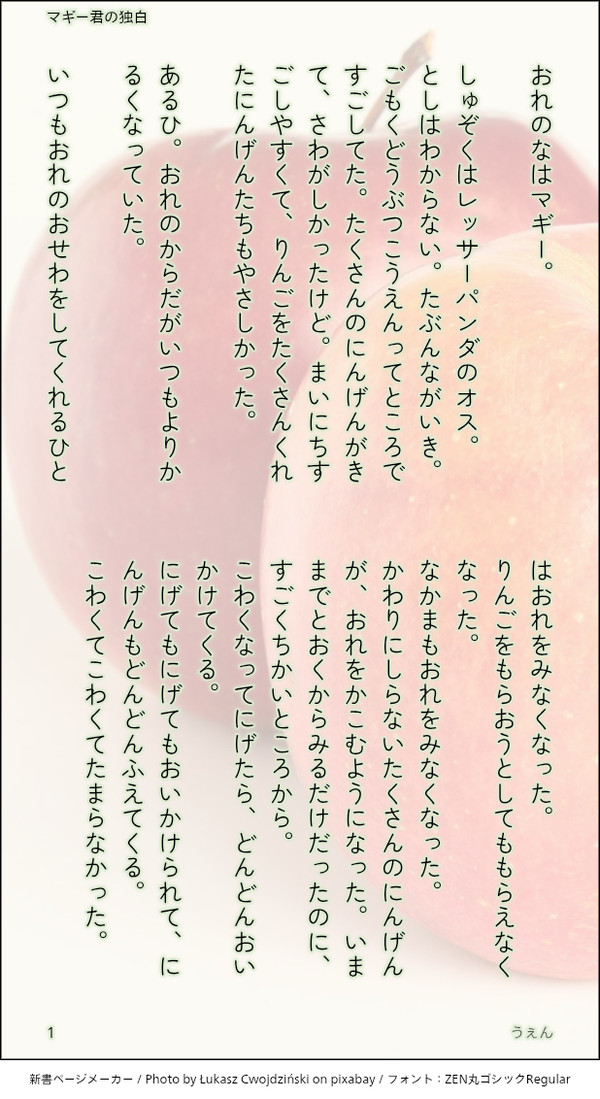 マギー君の独白
おれのなはマギー。
しゅぞくはレッサーパンダのオス。
としはわからない。たぶんながいき。
ごもくどうぶつこうえんってところで
すごしてた。たくさんのにんげんがき
て、さわがしかったけど。まいにちす
ごしやすくて、りんごをたくさんくれ
たにんげんたちもやさしかった。
あるひ。おれのからだがいつもよりか
るくなっていた。
いつもおれのおせわをしてくれるひと
はおれをみなくなった。
りんごをもらおうとしてももらえなく
なった。
なかまもおれをみなくなった。
かわりにしらないたくさんのにんげん
が、おれをかこむようになった。いま
までとおくからみるだけだったのに、
すごくちかいところから。
こわくなってにげたら、どんどんおい
かけてくる。
にげてもにげてもおいかけられて、に
んげんもどんどんふえてくる。
こわくてこわくてたまらなかった。
1
うぇん
新書ページメーカー / Photo by Łukasz Cwojdziński on pixabay / フォント：ZEN丸ゴシックRegular